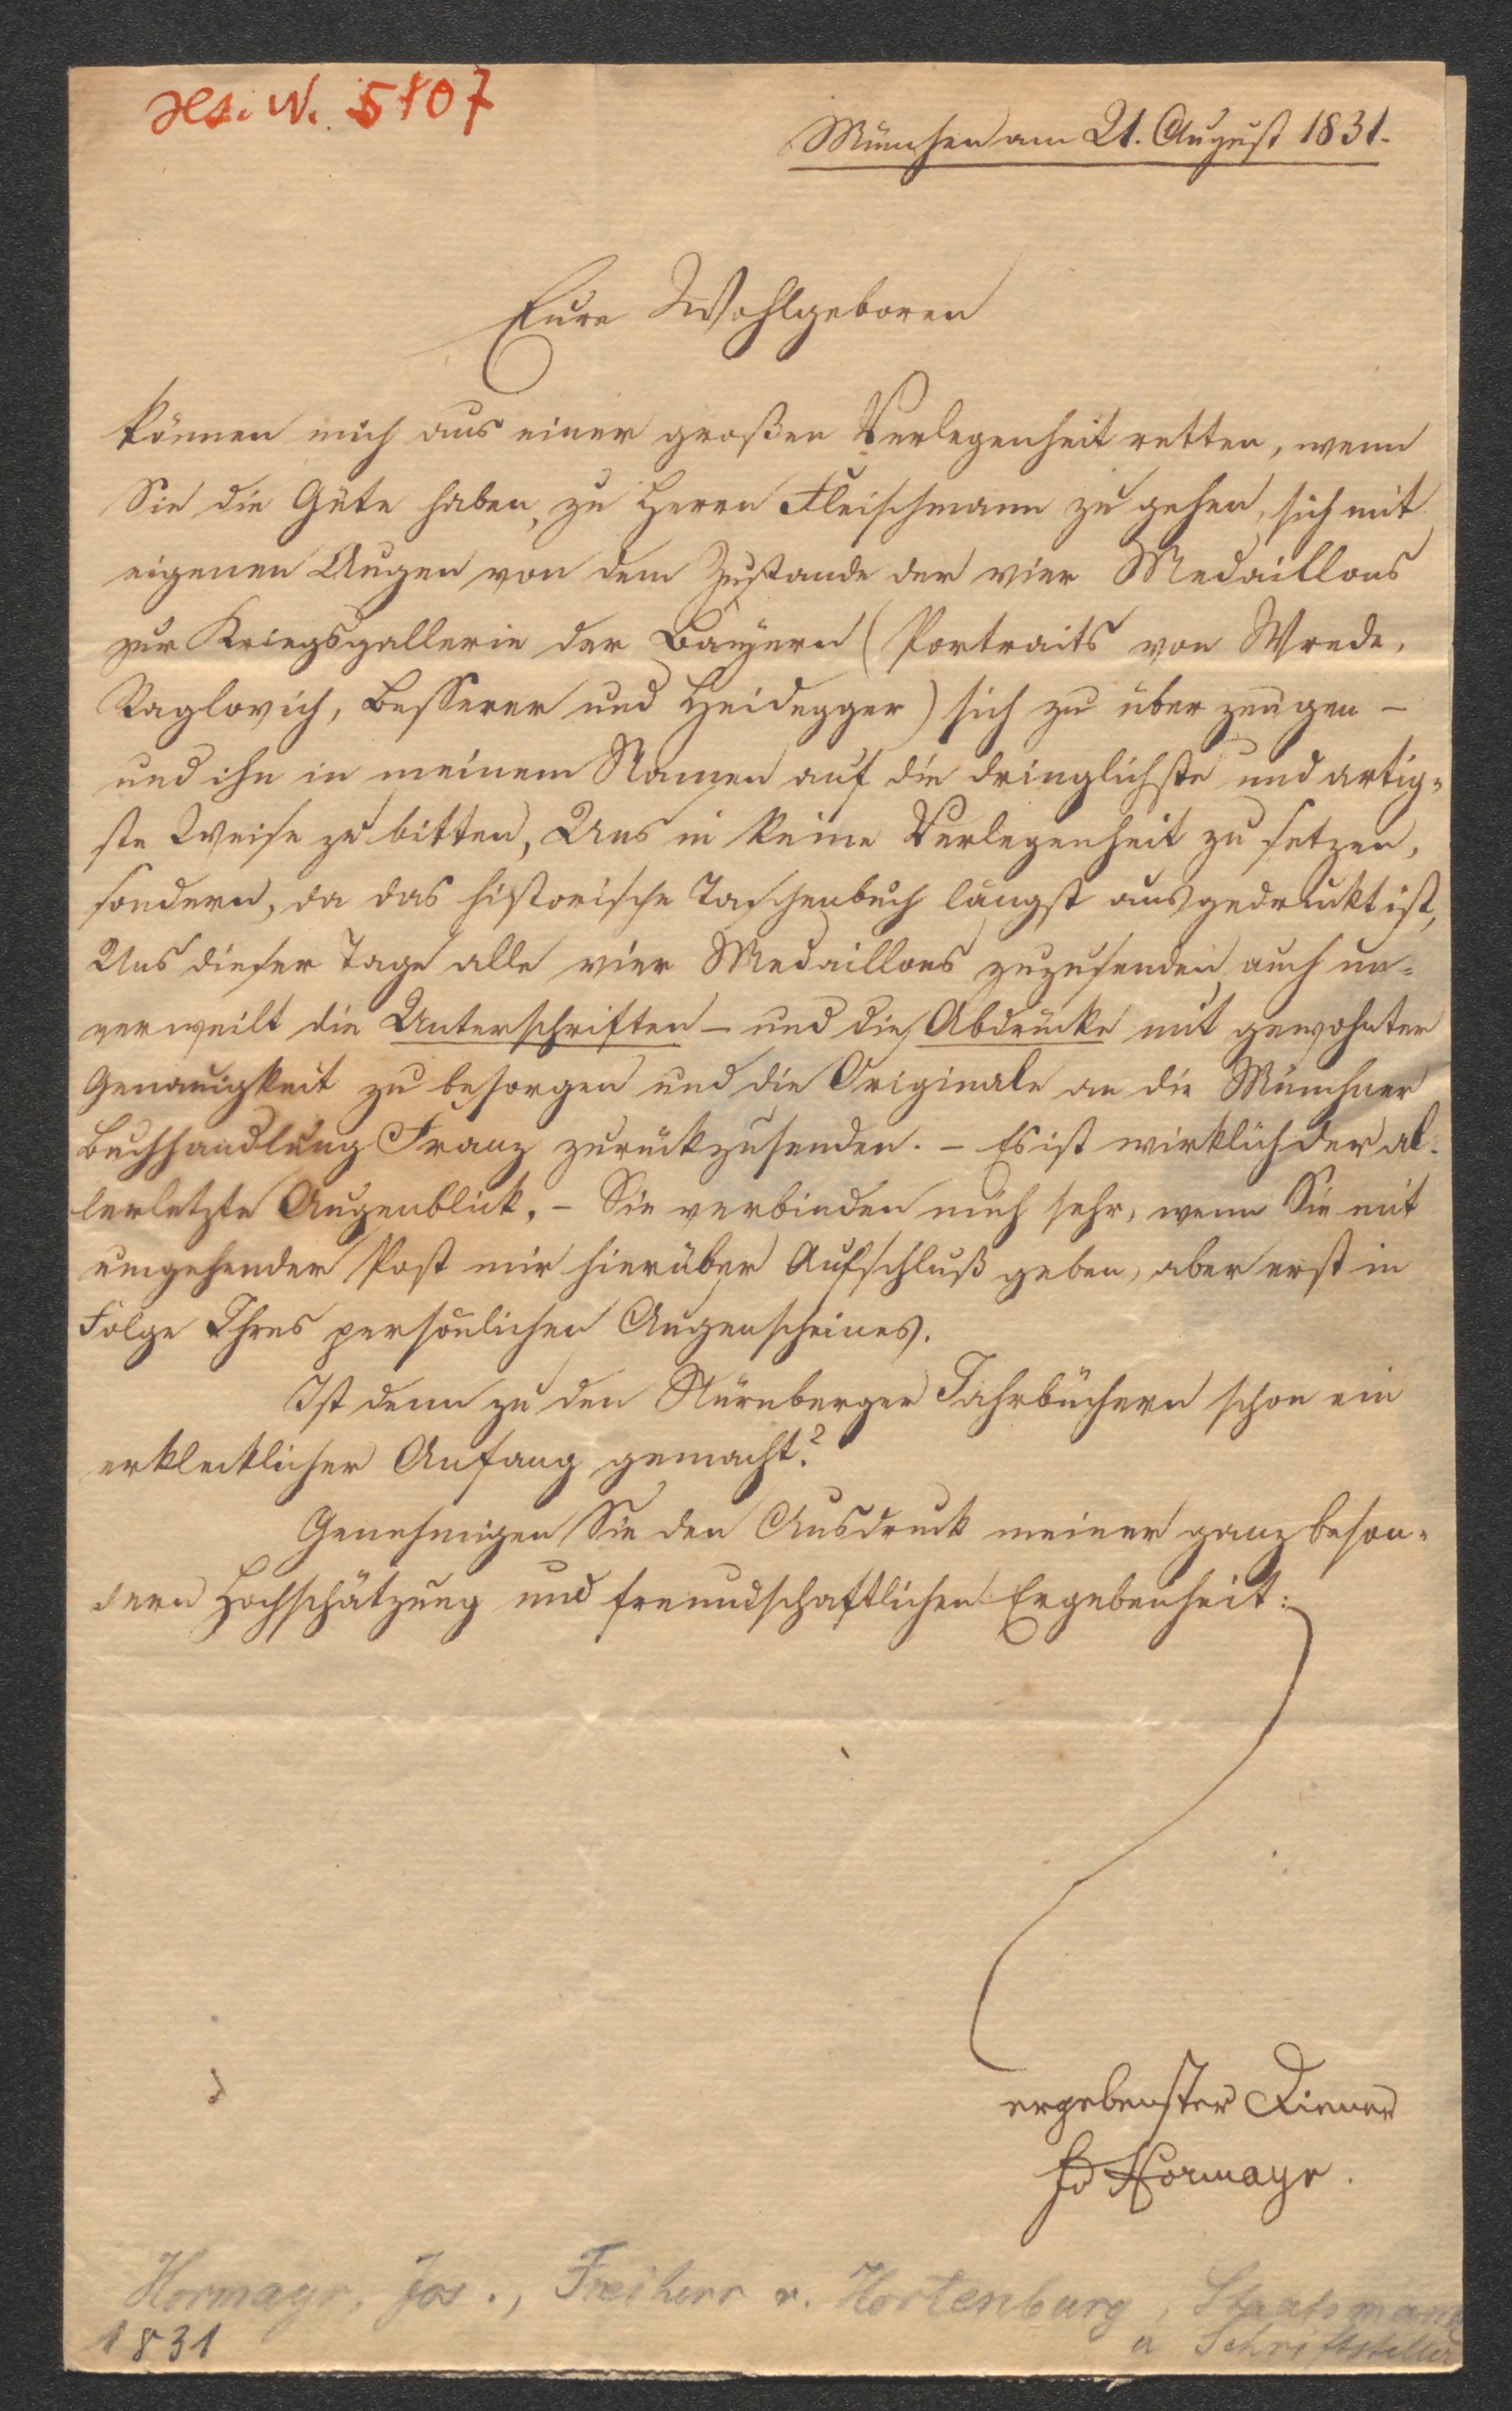 Hs. N. 5107
München am 21. August 1831.
Eure Wohlgeboren
können mich aus einer großen Verlegenheit retten, wenn
Sie die Güte haben, zu Herrn Fleischmann zu gehen, sich mit
eigenen Augen von dem Zustande der vier Medaillons
zur Kriegsgallerie der Bayern (Portraits von Wrede,
Raglovich, Besserer und Heidegger) sich zu überzeugen –
und ihn in meinem Namen auf die dringlichste und artig-
ste Weise zu bitten, Uns in keine Verlegenheit zu setzen,
sondern, da das historische Taschenbuch längst ausgedruckt ist,
Uns dieser Tage alle vier Medaillons zuzusenden, auch un-
verweilt die Unterschriften – und die Abdrücke mit gewohnter
Genauigkeit zu besorgen und die Originale an die Münchner
Buchhandlung Franz zurückzusenden. – Es ist wirklich der al-
lerletzte Augenblick. – Sie verbinden mich sehr, wenn Sie mit
umgehender Post mir hierüber Aufschluß geben, aber erst in
Folge Ihres persönlichen Augenscheines.
Ist denn zu den Nürnberger Jahrbüchern schon ein
erklecklicher Anfang gemacht?
Genehmigen Sie den Ausdruck meiner ganz beson-
dern Hochschätzung und freundschaftlichen Ergebenheit:
ergebenster Diener
Hormayr.
Hormayr, Jos., Freiherr v. Hortenburg, Staatsmann
1831 u Schriftsteller